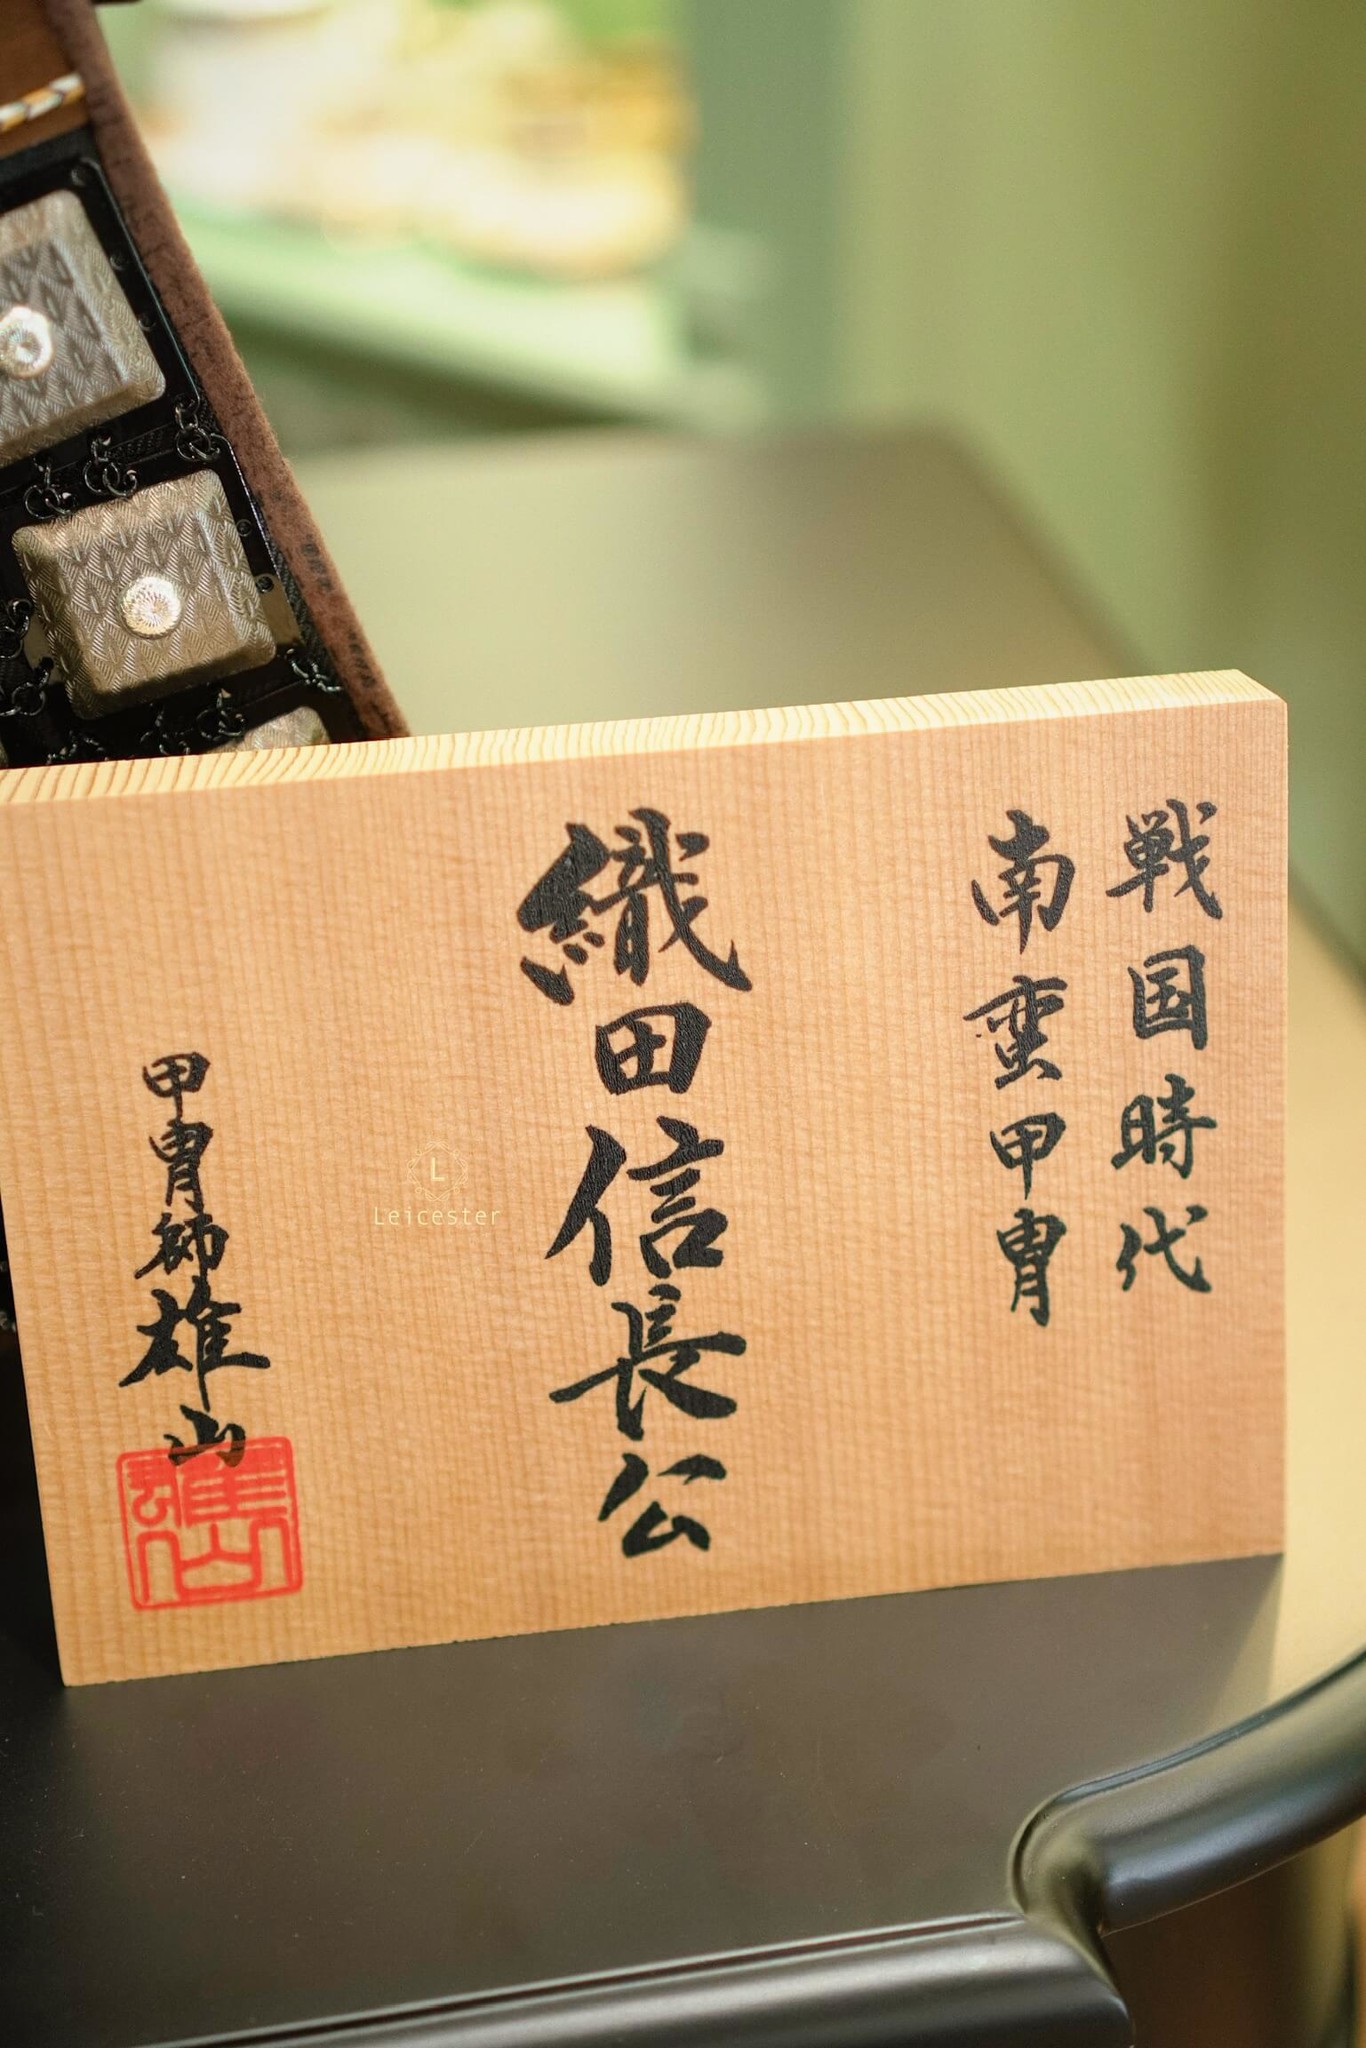 戦国時代
南蛮甲冑
織田信長公
甲冑師雄山
雄山
L
Leicester